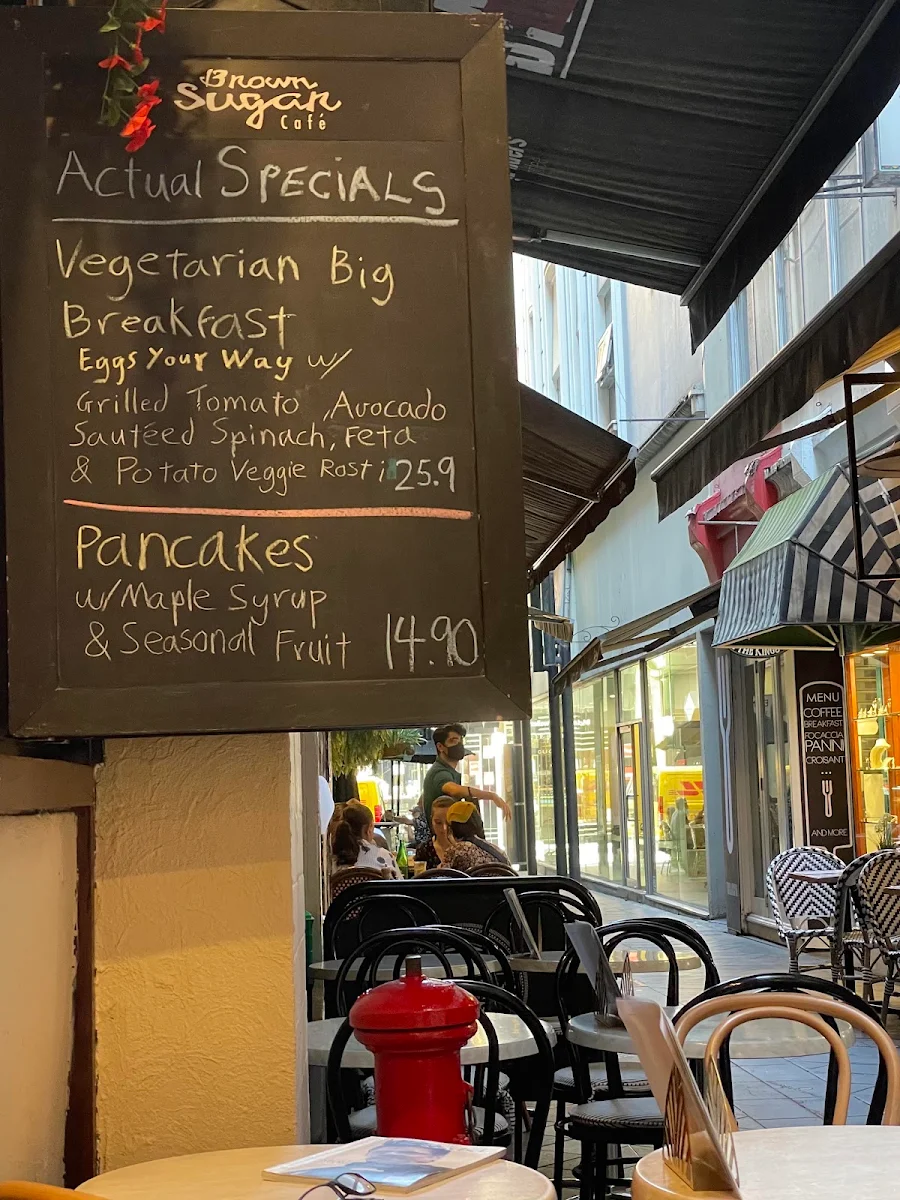 Brown
Sugar
Café
Actual SPECIALS
Vegetarian Big
Breakfast
Eggs Your Way w/
Grilled Tomato ,Avocado
Sautéed Spinach, Feta
& Potato Veggie Rosti 25.9
Pancakes
w/Maple Syrup
& Seasonal Fruit 14.90
THE KINGS
MENU
COFFEE
BREAKFAST
FOCACCIA
PANINI
CROISANT
AND MORE